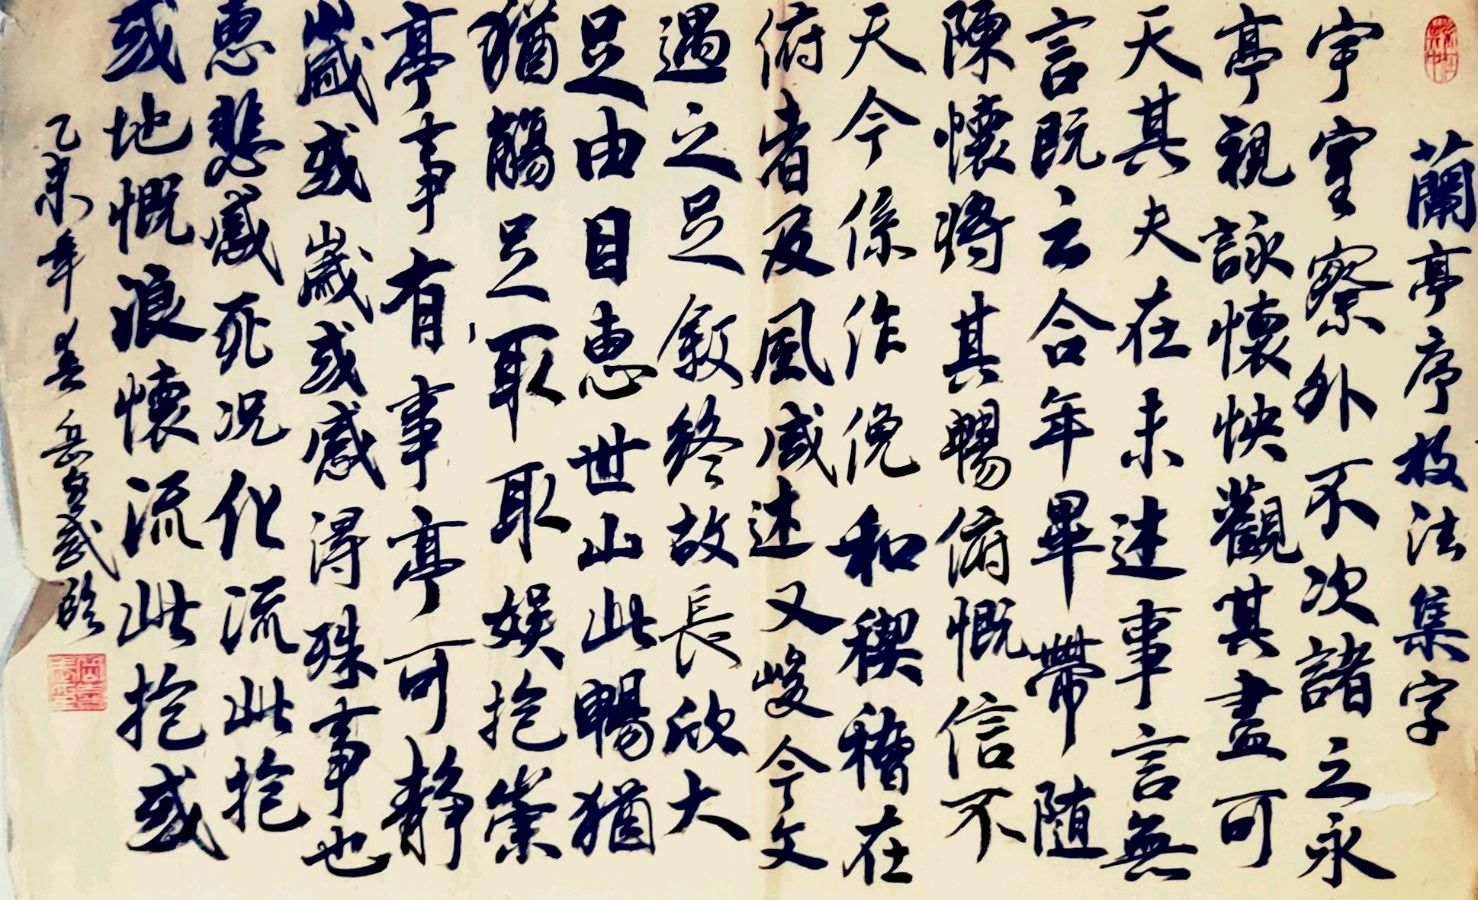 蘭亭序技法集字
宇室察外不次諸之永
亭視詠懷快觀其盡可
天其夫在未述事言無
言既云合年畢帶隨
陳懷將其暢俯慨信不
天今係作俛和稧稽在
俯者及風咸述又峻今文
遇之足叙終故長欣大
足由目惠世山此暢猶
猶觴足取取娱抱崇
亭事有事亭可静
歲或歲或感得殊事也
惠悲感死况化流此抱
或地慨浪懷流此抱或
乙未年